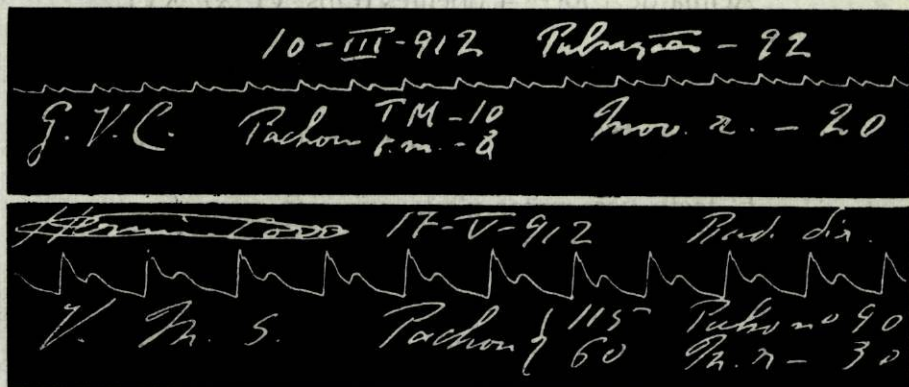 10-III-912 Pulsações - 92
G. V. C. Pachon TM - 10
r.m. - 8 Mov. r. - 20
17-V-912 Rad. dir.
V. M. S. Pachon { 115 Pulso nº 90
60 M. r - 30